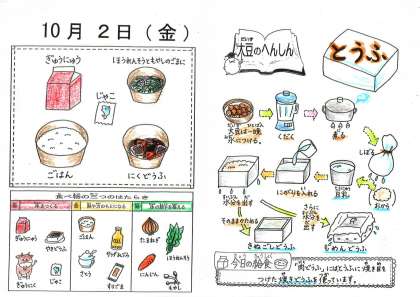 10月2日(金)
ぎゅうにゅう
ほうれんそうともやしのごまに
じゃこ
ごはん
にくどうふ
食べ物の三つのはたらき
ぎゅうにゅう
やきどうふ
じゃこ
ごはん
さとう
たまねぎ
にんじん
もやし
だいず
大豆のへんしん
とうふ
大豆は一晩
水につける。
くだく
煮る
しぼる
おから
豆乳
にがりを入れる
水分を出す
そのままかためる
さらに
水分を出す
きぬごしどうふ
もめんどうふ
今日の給食
「肉どうふ」にはとうふに焼き目を
つけた焼きどうふを使っています。